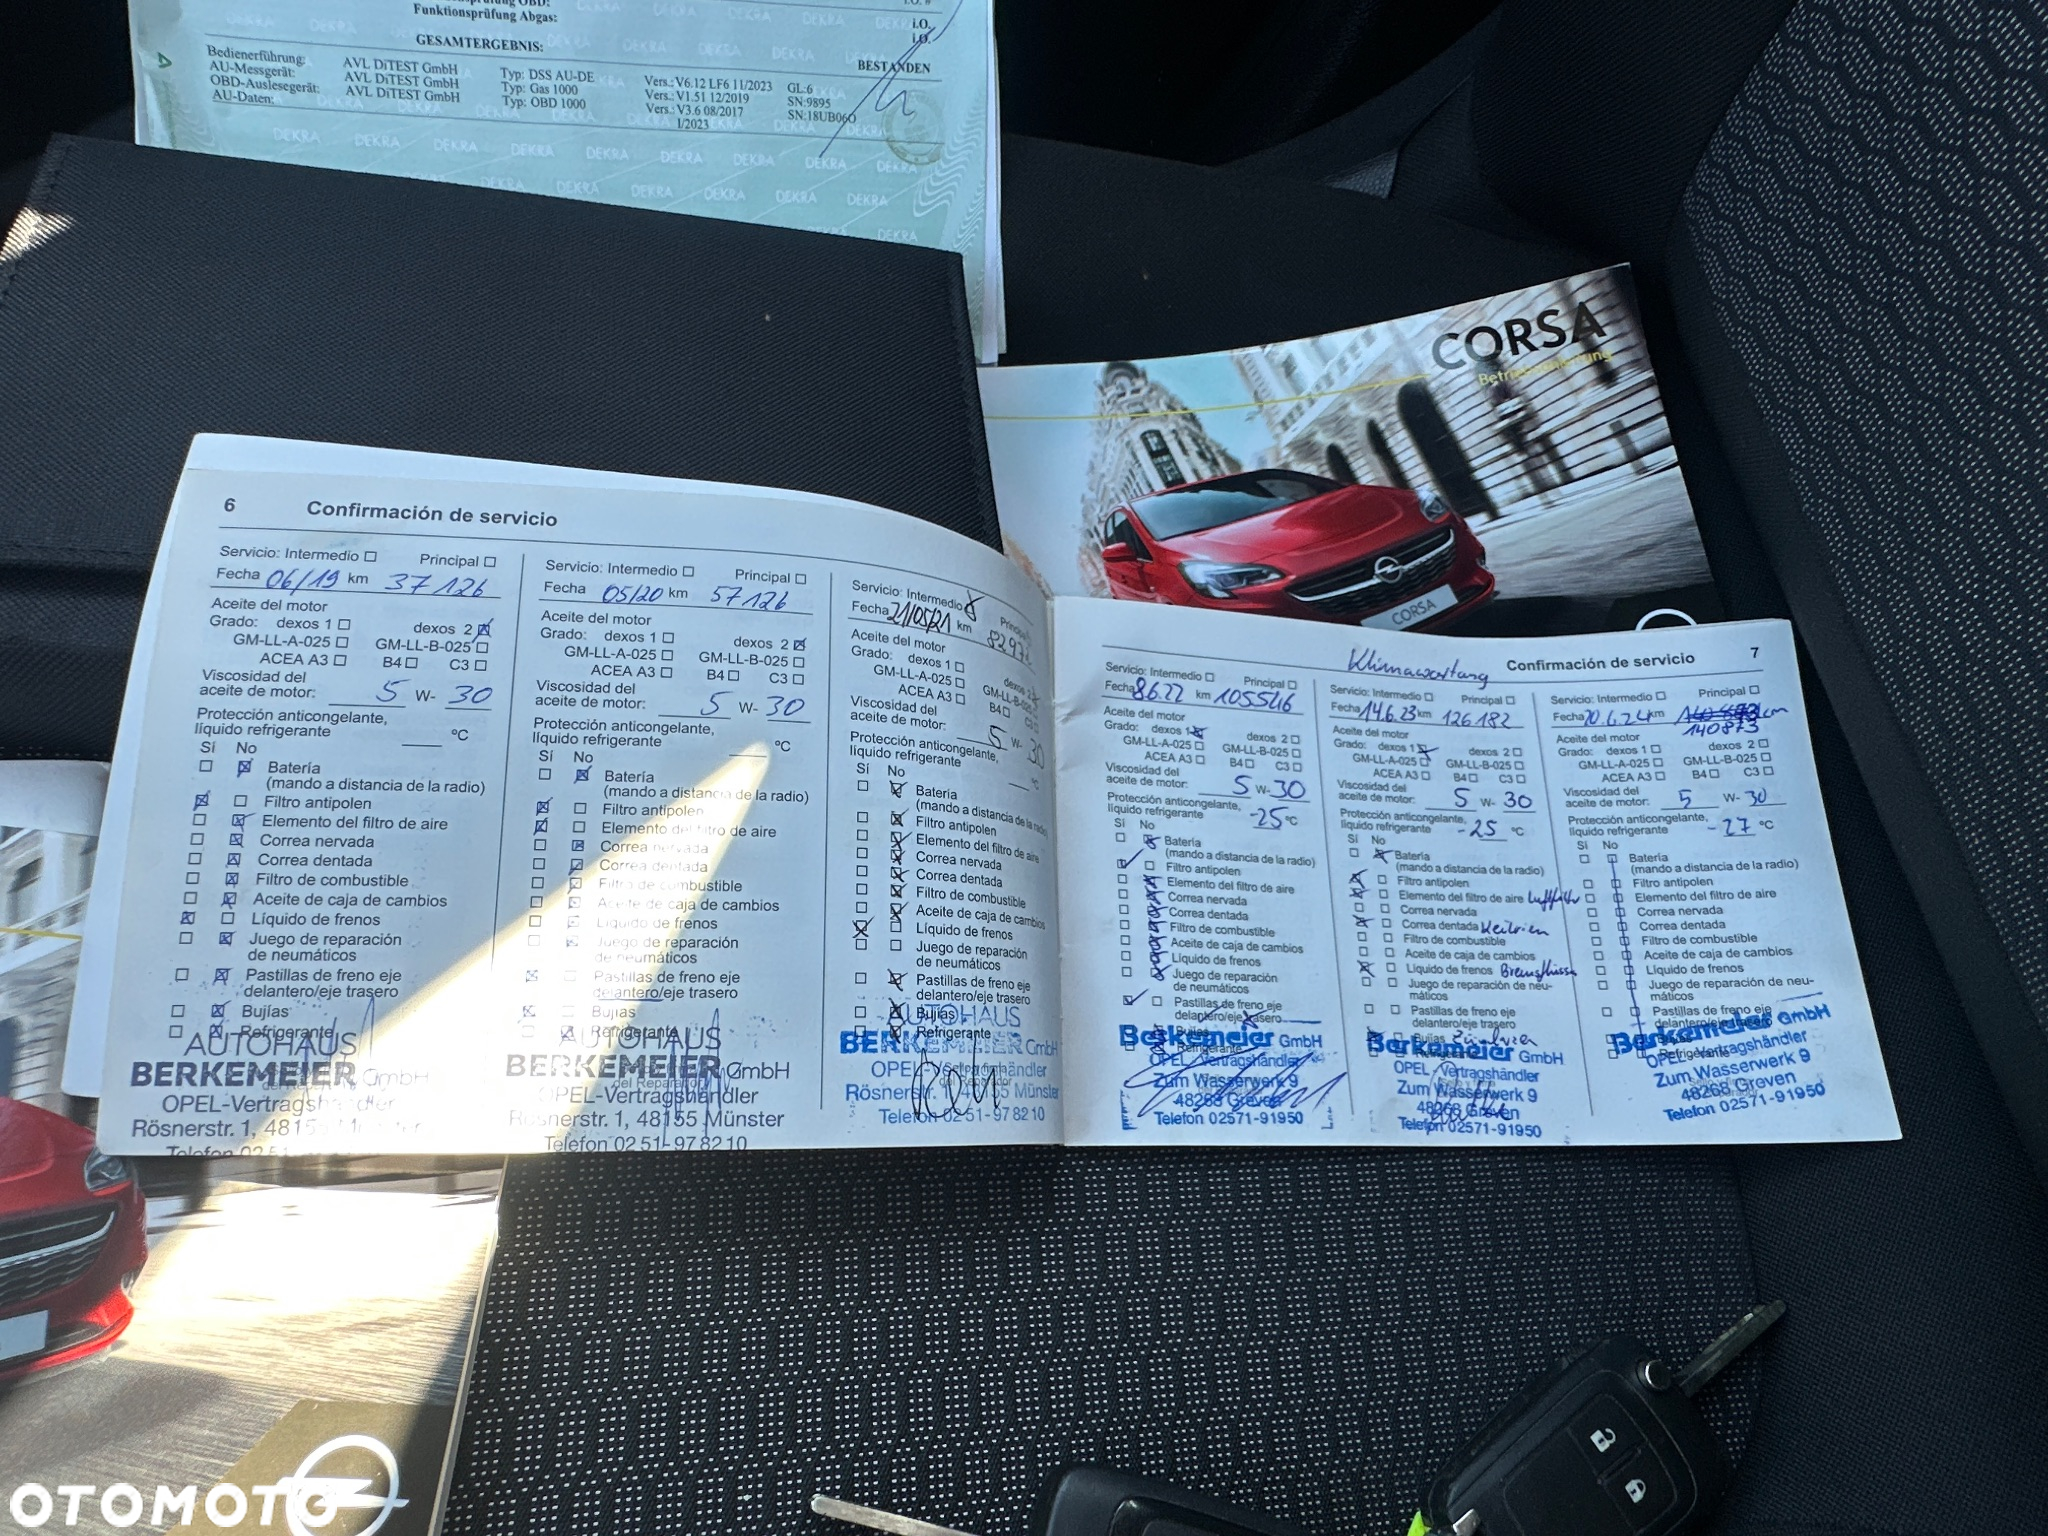 Funktionsprüfung Abgas: i.O.
i.O.
GESAMTERGEBNIS: BESTANDEN
Bedienerführung: AVL DiTEST GmbH Typ: DSS AU-DE Vers.: V6.12 LF6 11/2023 GL:6
AU-Messgerät: AVL DiTEST GmbH Typ: Gas 1000 Vers.: V1.51 12/2019 SN:9895
OBD-Auslesegerät: AVL DiTEST GmbH Typ: OBD 1000 Vers.: V3.6 08/2017 SN:18UB06O
AU-Daten: 1/2023
DEKRA DEKRA DEKRA DEKRA DEKRA DEKRA
CORSA
Betriebsanleitung
CORSA
6 Confirmación de servicio
Servicio: Intermedio Principal
Fecha 06/19 km 37126
Aceite del motor
Grado: dexos 1 dexos 2
GM-LL-A-025 GM-LL-B-025
ACEA A3 B4 C3
Viscosidad del
aceite de motor: 5 W- 30
Protección anticongelante,
líquido refrigerante °C
Sí No
Batería
(mando a distancia de la radio)
Filtro antipolen
Elemento del filtro de aire
Correa nervada
Correa dentada
Filtro de combustible
Aceite de caja de cambios
Líquido de frenos
Juego de reparación
de neumáticos
Pastillas de freno eje
delantero/eje trasero
Bujías
Refrigerante
AUTOHAUS
BERKEMEIER GmbH
OPEL-Vertragshändler
Rösnerstr. 1, 48155 Münster
Servicio: Intermedio Principal
Fecha 05/20 km 57126
Aceite del motor
Grado: dexos 1 dexos 2
GM-LL-A-025 GM-LL-B-025
ACEA A3 B4 C3
Viscosidad del
aceite de motor: 5 W- 30
Protección anticongelante,
líquido refrigerante °C
Sí No
Batería
(mando a distancia de la radio)
Filtro antipolen
Elemento del filtro de aire
Correa nervada
Correa dentada
Filtro de combustible
Aceite de caja de cambios
Líquido de frenos
Juego de reparación
de neumáticos
Pastillas de freno eje
delantero/eje trasero
Bujías
Refrigerante
AUTOHAUS
BERKEMEIER GmbH
OPEL-Vertragshändler
Rösnerstr. 1, 48155 Münster
Telefon 02 51-97 82 10
Servicio: Intermedio Principal
Fecha 21/05/21 km
Aceite del motor
Grado: dexos 1 dexos 2
GM-LL-A-025 GM-LL-B-025
ACEA A3 B4 C3
Viscosidad del
aceite de motor: 5 W- 30
Protección anticongelante,
líquido refrigerante °C
Sí No
Batería
(mando a distancia de la radio)
Filtro antipolen
Elemento del filtro de aire
Correa nervada
Correa dentada
Filtro de combustible
Aceite de caja de cambios
Líquido de frenos
Juego de reparación
de neumáticos
Pastillas de freno eje
delantero/eje trasero
Bujías
Refrigerante
AUTOHAUS
BERKEMEIER GmbH
OPEL-Vertragshändler
Rösnerstr. 1, 48155 Münster
Telefon 02 51-97 82 10
Klimawartung Confirmación de servicio 7
Servicio: Intermedio Principal
Fecha 8.6.22 km 105546
Aceite del motor
Grado: dexos 1 dexos 2
GM-LL-A-025 GM-LL-B-025
ACEA A3 B4 C3
Viscosidad del
aceite de motor: 5 W- 30
Protección anticongelante,
líquido refrigerante -25 °C
Sí No
Batería
(mando a distancia de la radio)
Filtro antipolen
Elemento del filtro de aire
Correa nervada
Correa dentada
Filtro de combustible
Aceite de caja de cambios
Líquido de frenos
Juego de reparación
de neumáticos
Pastillas de freno eje
delantero/eje trasero
Bujías
Refrigerante
Berkemeier GmbH
OPEL-Vertragshändler
Zum Wasserwerk 9
48268 Greven
Telefon 02571-91950
Servicio: Intermedio Principal
Fecha 14.6.23 km 126182
Aceite del motor
Grado: dexos 1 dexos 2
GM-LL-A-025 GM-LL-B-025
ACEA A3 B4 C3
Viscosidad del
aceite de motor: 5 W- 30
Protección anticongelante,
líquido refrigerante -25 °C
Sí No
Batería
(mando a distancia de la radio)
Filtro antipolen
Elemento del filtro de aire Luftfilter
Correa nervada
Correa dentada Keilriem
Filtro de combustible
Aceite de caja de cambios
Líquido de frenos
Juego de reparación de neu-
máticos
Pastillas de freno eje
delantero/eje trasero
Bujías
Refrigerante
Berkemeier GmbH
OPEL-Vertragshändler
Zum Wasserwerk 9
48268 Greven
Telefon 02571-91950
Servicio: Intermedio Principal
Fecha 20.6.24 km
140873
Aceite del motor
Grado: dexos 1 dexos 2
GM-LL-A-025 GM-LL-B-025
ACEA A3 B4 C3
Viscosidad del
aceite de motor: 5 W- 30
Protección anticongelante,
líquido refrigerante -27 °C
Batería
(mando a distancia de la radio)
Filtro antipolen
Elemento del filtro de aire
Correa nervada
Correa dentada
Filtro de combustible
Aceite de caja de cambios
Líquido de frenos
Juego de reparación de neu-
máticos
Pastillas de freno eje
delantero/eje trasero
Refrigerante
Berkemeier GmbH
OPEL Vertragshändler
Zum Wasserwerk 9
48268 Greven
Telefon 02571-91950
OTOMOTO